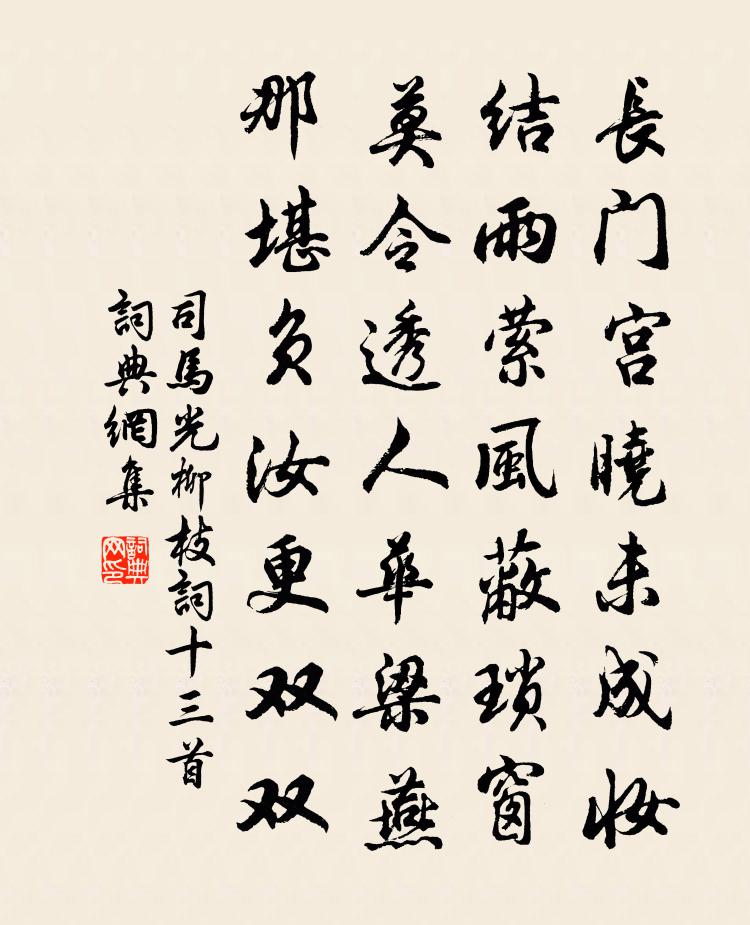 長门宫曉未成妝
结雨萦風蔽瑣窗
莫令透人華梁燕
那堪负汝更双双
司馬光柳枝詞十三首
詞典網集
詞典网印